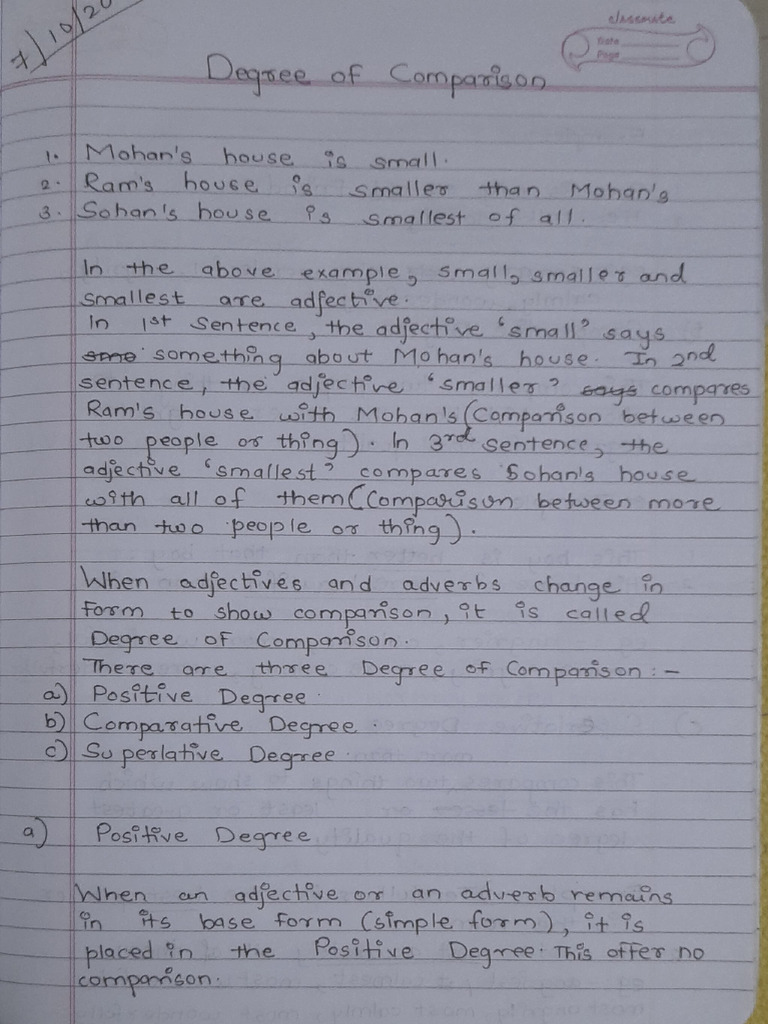 7/10/20
classmate
Date
Page
Degree of Comparison
1. Mohan's house is small.
2. Ram's house is smaller than Mohan's
3. Sohan's house is smallest of all.
In the above example, small, smaller and
smallest are adjective.
In 1st sentence, the adjective 'small' says
some something about Mohan's house. In 2nd
sentence, the adjective 'smaller' says compares
Ram's house with Mohan's (Comparison between
two people or thing). In 3rd sentence, the
adjective 'smallest' compares Sohan's house
with all of them (Comparison between more
than two people or thing).
When adjectives and adverbs change in
form to show comparison, it is called
Degree of Comparison.
There are three Degree of Comparison :-
a) Positive Degree.
b) Comparative Degree.
c) Superlative Degree.
a) Positive Degree
When an adjective or an adverb remains
in its base form (simple form), it is
placed in the Positive Degree. This offer no
comparison.